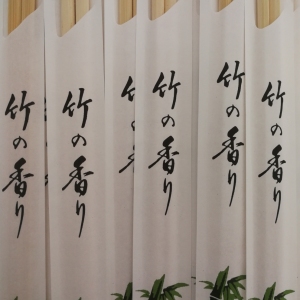 竹の香り
竹の香り
竹の香り
竹の香り
竹の香り
竹の香り